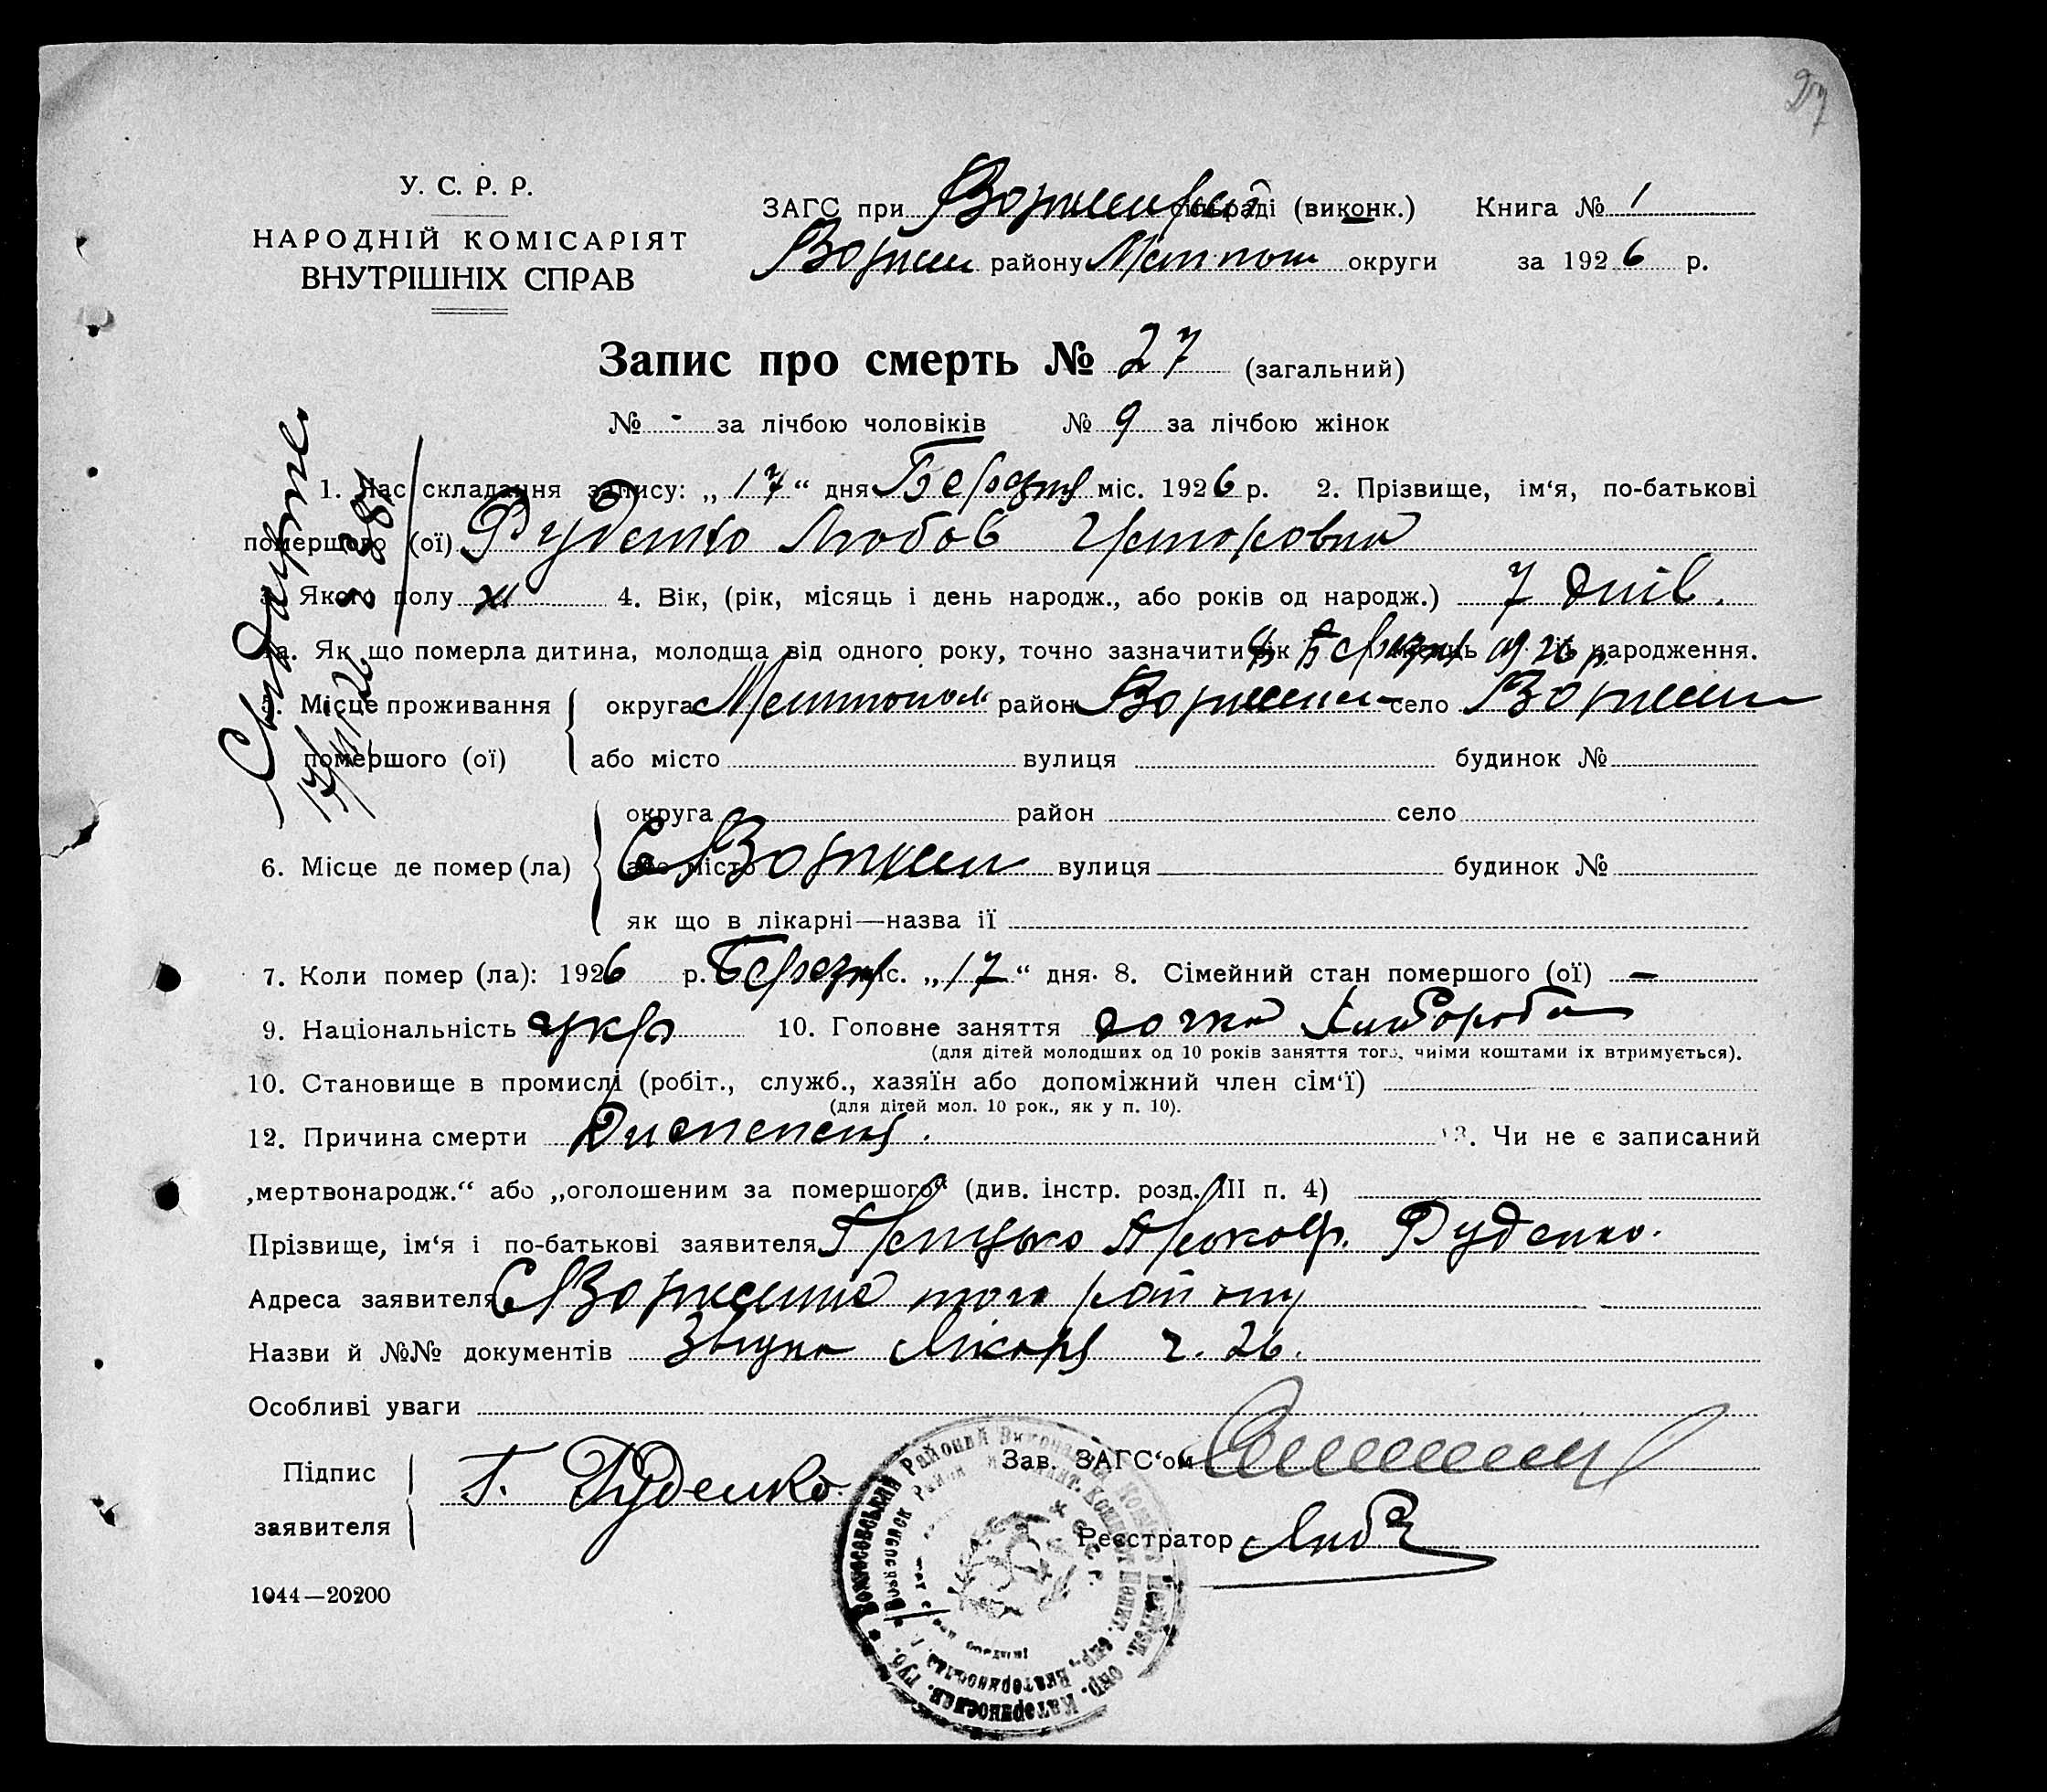 27
У. С. Р. Р.
НАРОДНІЙ КОМІСАРІЯТ
ВНУТРІШНІХ СПРАВ
ЗАГС при (виконк.) Книга № 1
району округи за 1926 р.
Запис про смерть № 27 (загальний)
№ - за лічбою чоловіків № 9 за лічбою жінок
1. Час складання запису: „17“ дня Березня міс. 1926 р. 2. Прізвище, ім‘я, по-батькові
помершого (ої) Руденко Любов
3. Якого полу ж 4. Вік, (рік, місяць і день народж., або років од народж.) 7 днів.
4а. Як що померла дитина, молодща від одного року, точно зазначити рік Березня 1926 р. народження.
5. Місце проживання округа район село
помершого (ої) або місто вулиця будинок №
округа район село
6. Місце де помер (ла) або місто вулиця будинок №
як що в лікарні—назва її
7. Коли помер (ла): 1926 р. Березня міс. „17“ дня. 8. Сімейний стан помершого (ої) —
9. Національність укр 10. Головне заняття дочка хлібороба
(для дітей молодших од 10 років заняття того, чиїми коштами їх втримується).
10. Становище в промислі (робіт., служб., хазяїн або допоміжний член сім‘ї)
(для дітей мол. 10 рок., як у п. 10).
12. Причина смерти Диспепсия. 13. Чи не є записаний
„мертвонародж.“ або „оголошеним за помершого“ (див. інстр. розд. III п. 4)
Прізвище, ім‘я і по-батькові заявителя Грицько Прокоф. Руденко.
Адреса заявителя того району
Назви й №№ документів Лікаря ч. 26.
Особливі уваги
Підпис
заявителя Г. Руденко
Зав. ЗАГС‘ом
Реєстратор
1044—20200